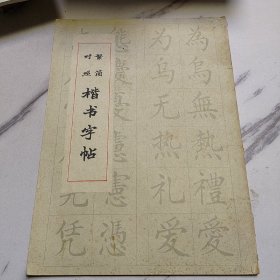 繁简
对照
楷书字帖
為烏無熱禮愛
为乌无热礼爱
態慶憲憑
凭